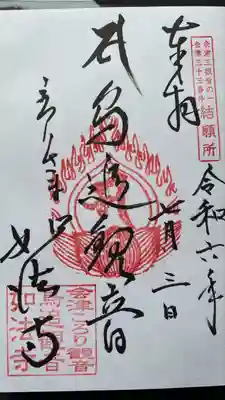 奉拝
会津三観音の一
会津三十三番外
結願所
令和六年
七月三日
鳥追観音
如法寺
会津ころり観音
鳥追観音
如法寺